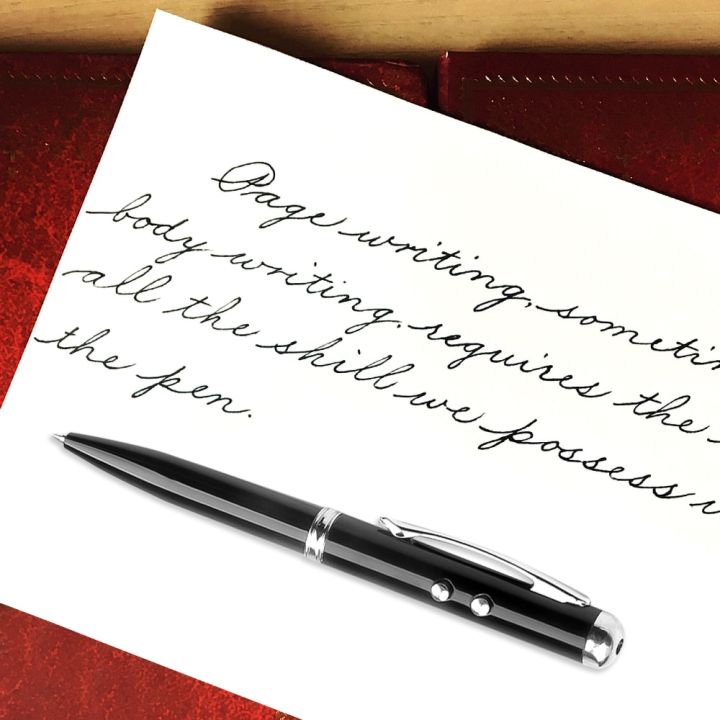 Page writing, 
body writing, requires the
all the skill we possess
the pen.